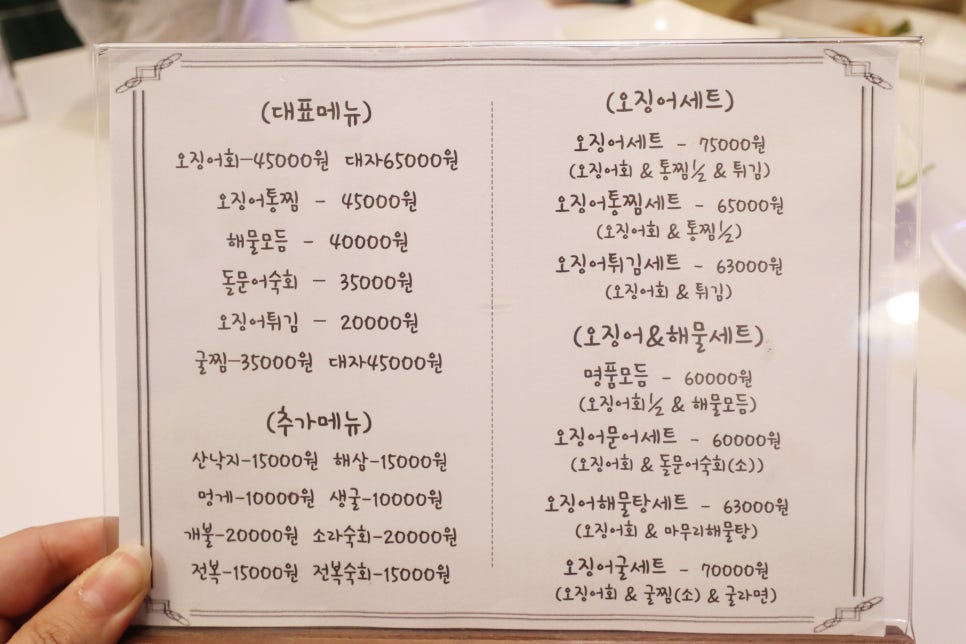 (대표메뉴)
오징어회-45000원 대자65000원
오징어통찜 - 45000원
해물모듬 - 40000원
돌문어숙회 - 35000원
오징어튀김 - 20000원
굴찜-35000원 대자45000원
(추가메뉴)
산낙지-15000원 해삼-15000원
멍게-10000원 생굴-10000원
개불-20000원 소라숙회-20000원
전복-15000원 전복숙회-15000원
(오징어세트)
오징어세트 - 75000원
(오징어회 & 통찜½ & 튀김)
오징어통찜세트 - 65000원
(오징어회 & 통찜½)
오징어튀김세트 - 63000원
(오징어회 & 튀김)
(오징어&해물세트)
명품모듬 - 60000원
(오징어회½ & 해물모듬)
오징어문어세트 - 60000원
(오징어회 & 돌문어숙회(소))
오징어해물탕세트 - 63000원
(오징어회 & 마무리해물탕)
오징어굴세트 - 70000원
(오징어회 & 굴찜(소) & 굴라면)